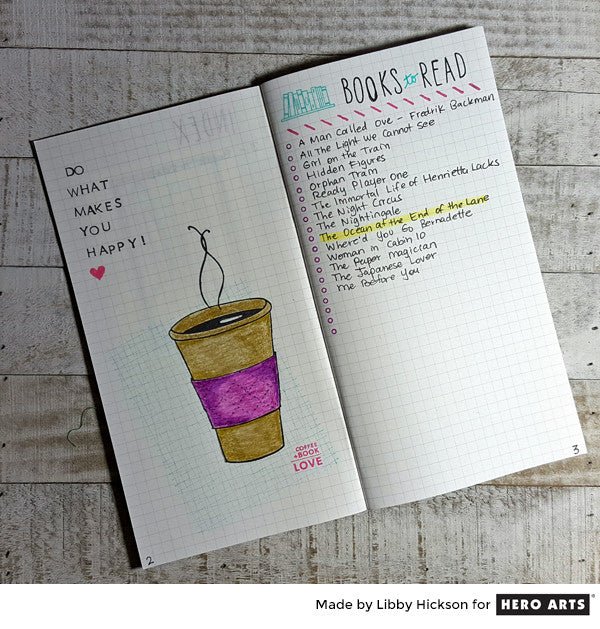 DO
WHAT
MAKES
YOU
HAPPY!
COFFEE
+BOOK
LOVE
2
INDEX
BOOKS to READ
A Man Called Ove - Fredrik Backman
All The Light We Cannot See
Girl on the Train
Hidden Figures
Orphan Train
Ready Player One
The Immortal Life of Henrietta Lacks
The Night Circus
The Nightingale
The Ocean at the End of the Lane
Where'd You Go Bernadette
Woman in Cabin 10
The Paper magician
The Japanese Lover
Me Before You
3
Made by Libby Hickson for HERO ARTS®